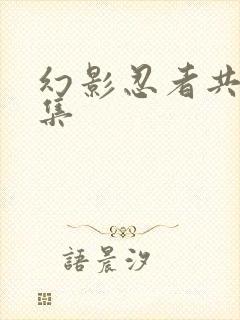 幻影忍者共
集
語晨汐